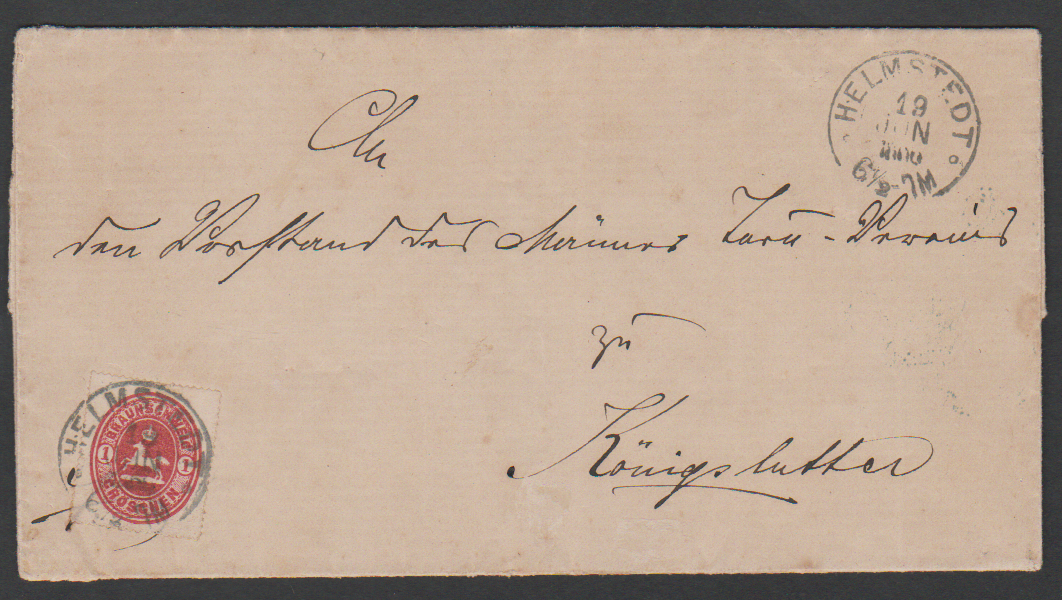 HELMSTEDT
19
JUN
6½-7M
An
den Vorstand des Männer Turn-Vereins
zu
Königslutter
HELMSTEDT
BRAUNSCHWEIG
1 1
GROSCHEN